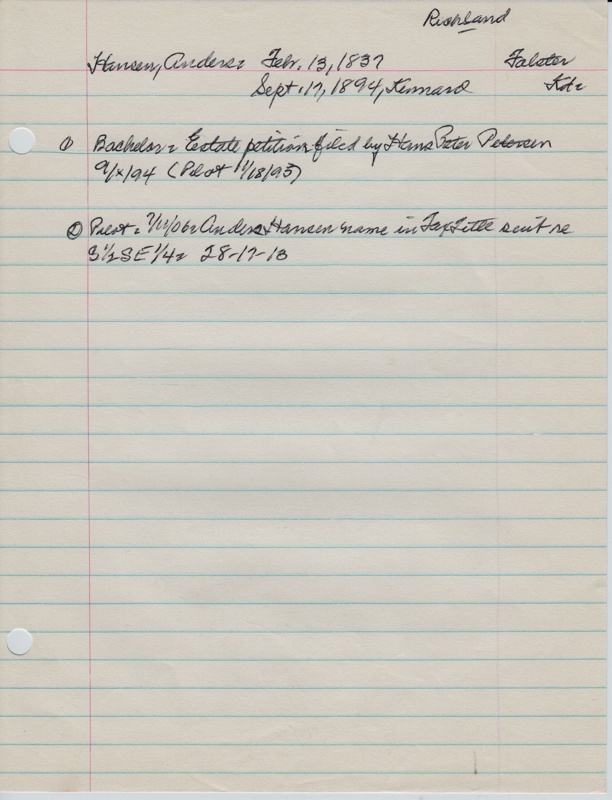 Richland
Hansen, Anders = Febr. 13, 1837 Falster
Sept. 17, 1894, Kennard
① Bachelor = Estate petition filed by Hans Peter Petersen
9/x/94 (Pilot 1/18/95)
② Pilot = Anders Hansen name in Tax Title suit re
S 1/2 SE 1/4 = 28-17-10